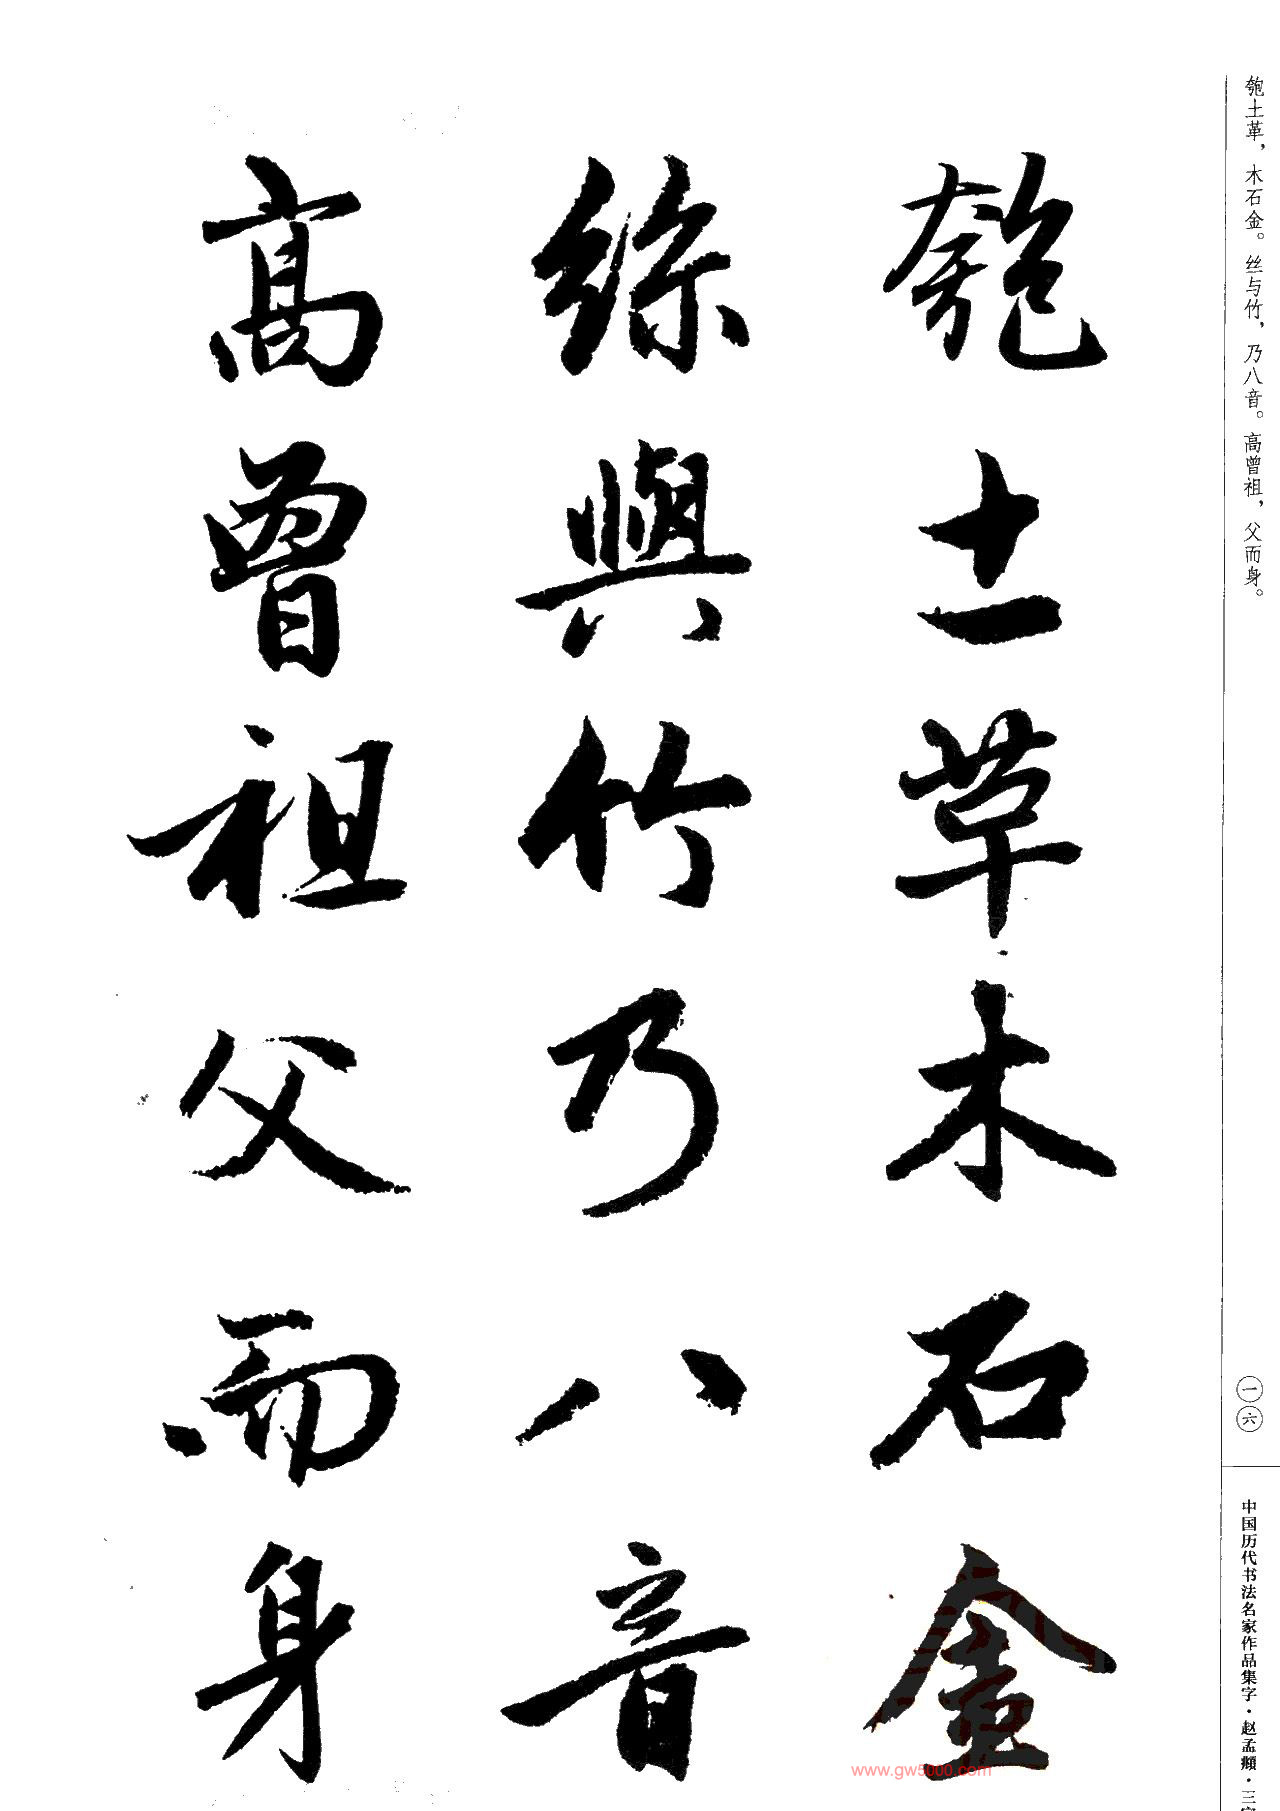 匏土革，木石金。丝与竹，乃八音。高曾祖，父而身。
一六
中国历代书法名家作品集字·赵孟頫·三
匏土草木石金
絲與竹乃八音
高曾祖父而身
www.gw5000.com